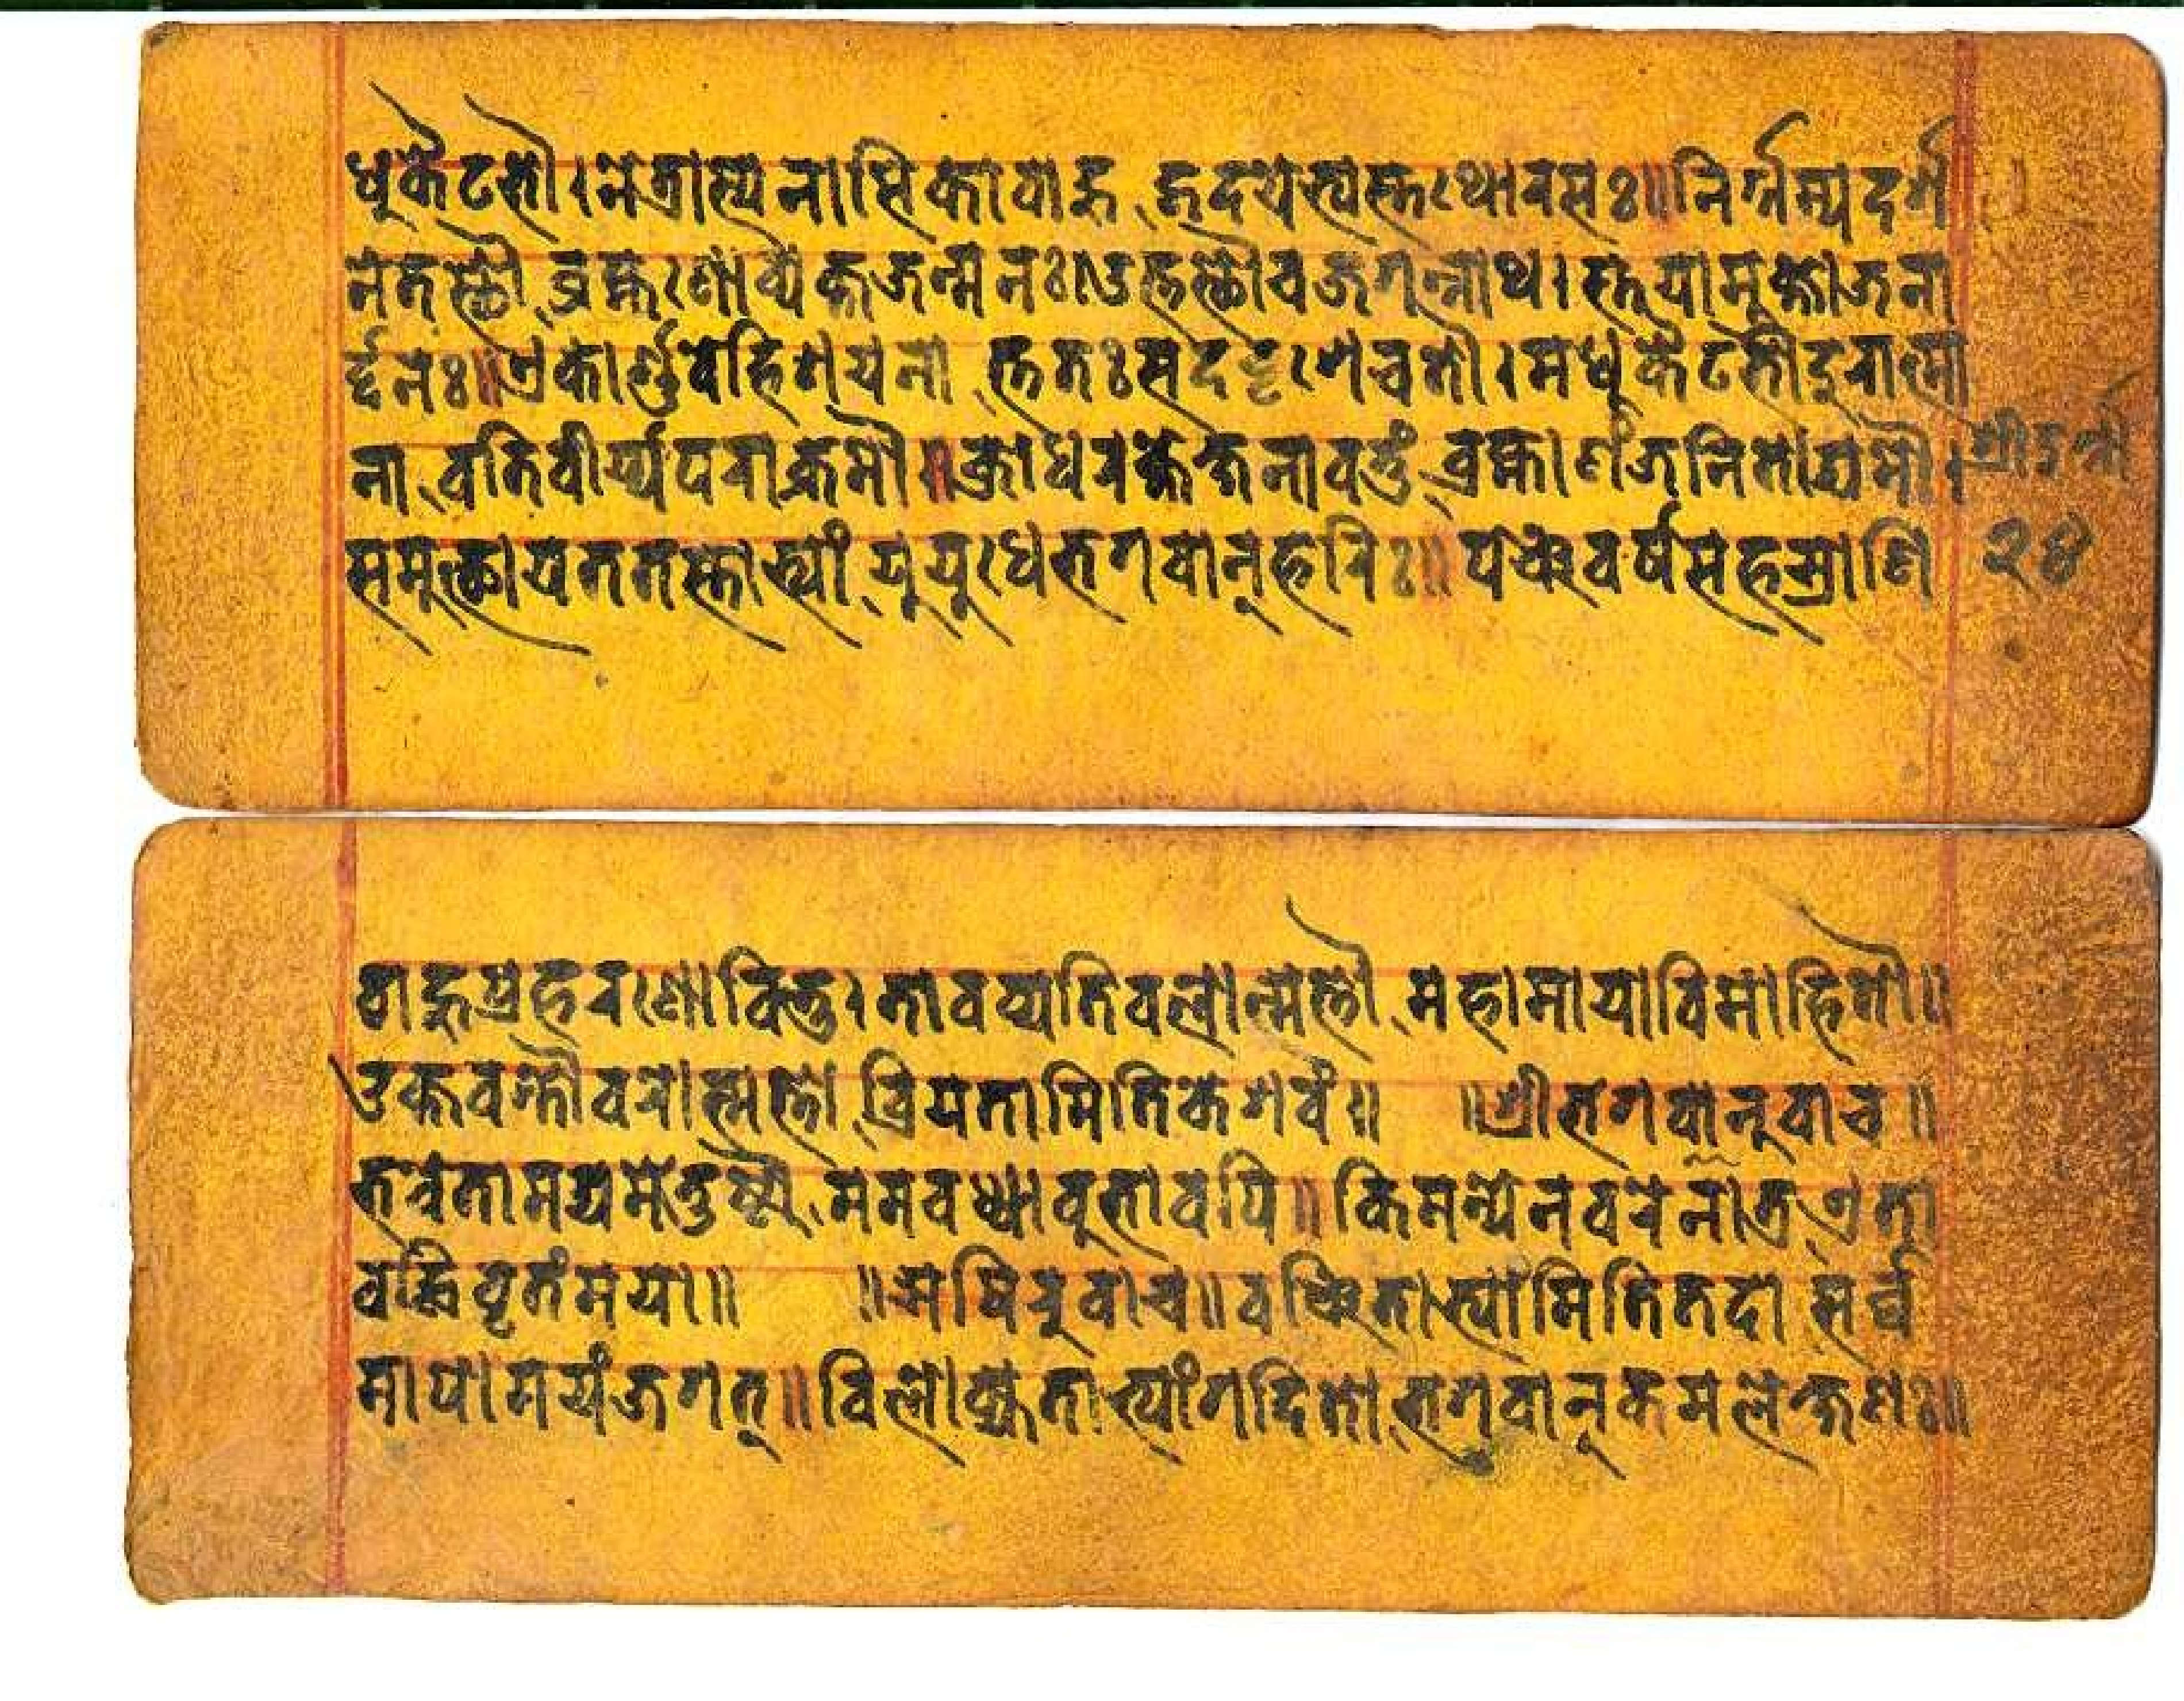 धुकैटभौ।नेत्रास्यनासिकाबाहु हृदयेभ्यस्तथोरसः॥निर्गम्यदर्श
नेतस्थौ ब्रह्मणोव्यक्तजन्मनः॥उत्तस्थौचजगन्नाथ।स्तयामुक्तोजना
र्द्दनः॥एकार्ण्णवेहिशयना त्ततःसददृशेचतौ।मधुकैटभौदुरात्मा
ना वतिवीर्य्यपराक्रमौ॥क्रोधरक्तेक्षनावत्तुं ब्रह्माणंजनितोद्यमौ।
समुत्थायततस्ताभ्यां युयुधेभगवान्हरिः॥पञ्चवर्षसहस्राणि
श्रीदुर्गा
२४
बाहुप्रहरणोविभु।तावप्यतिबलोन्मत्तौ महामायाविमोहितौ॥
उक्तवन्तौवरोस्मत्तो व्रियतामितिकेशवं॥ ॥श्रीभगवानुवाच॥
भवेतामद्यमेतुष्टौ ममवध्यावुभावपि॥किमन्येनवरेनात्र एता
वद्धिवृतंमया॥ ॥ऋषिरुवाच॥वञ्चिताभ्यामितितदा सर्व्व
मापोमयंजगत्॥विलोक्यताभ्यांगदितो भगवान्कमलेक्षणः॥